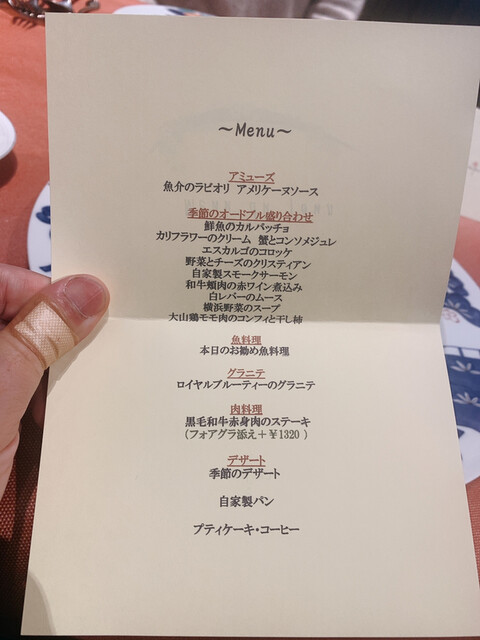 ～Menu～
アミューズ
魚介のラビオリ アメリケーヌソース
季節のオードブル盛り合わせ
鮮魚のカルパッチョ
カリフラワーのクリーム 蟹とコンソメジュレ
エスカルゴのコロッケ
野菜とチーズのクリスティアン
自家製スモークサーモン
和牛頬肉の赤ワイン煮込み
白レバーのムース
横浜野菜のスープ
大山鶏モモ肉のコンフィと干し柿
魚料理
本日のお勧め魚料理
グラニテ
ロイヤルブルーティーのグラニテ
肉料理
黒毛和牛赤身肉のステーキ
(フォアグラ添え＋￥1320 )
デザート
季節のデザート
自家製パン
プティケーキ・コーヒー